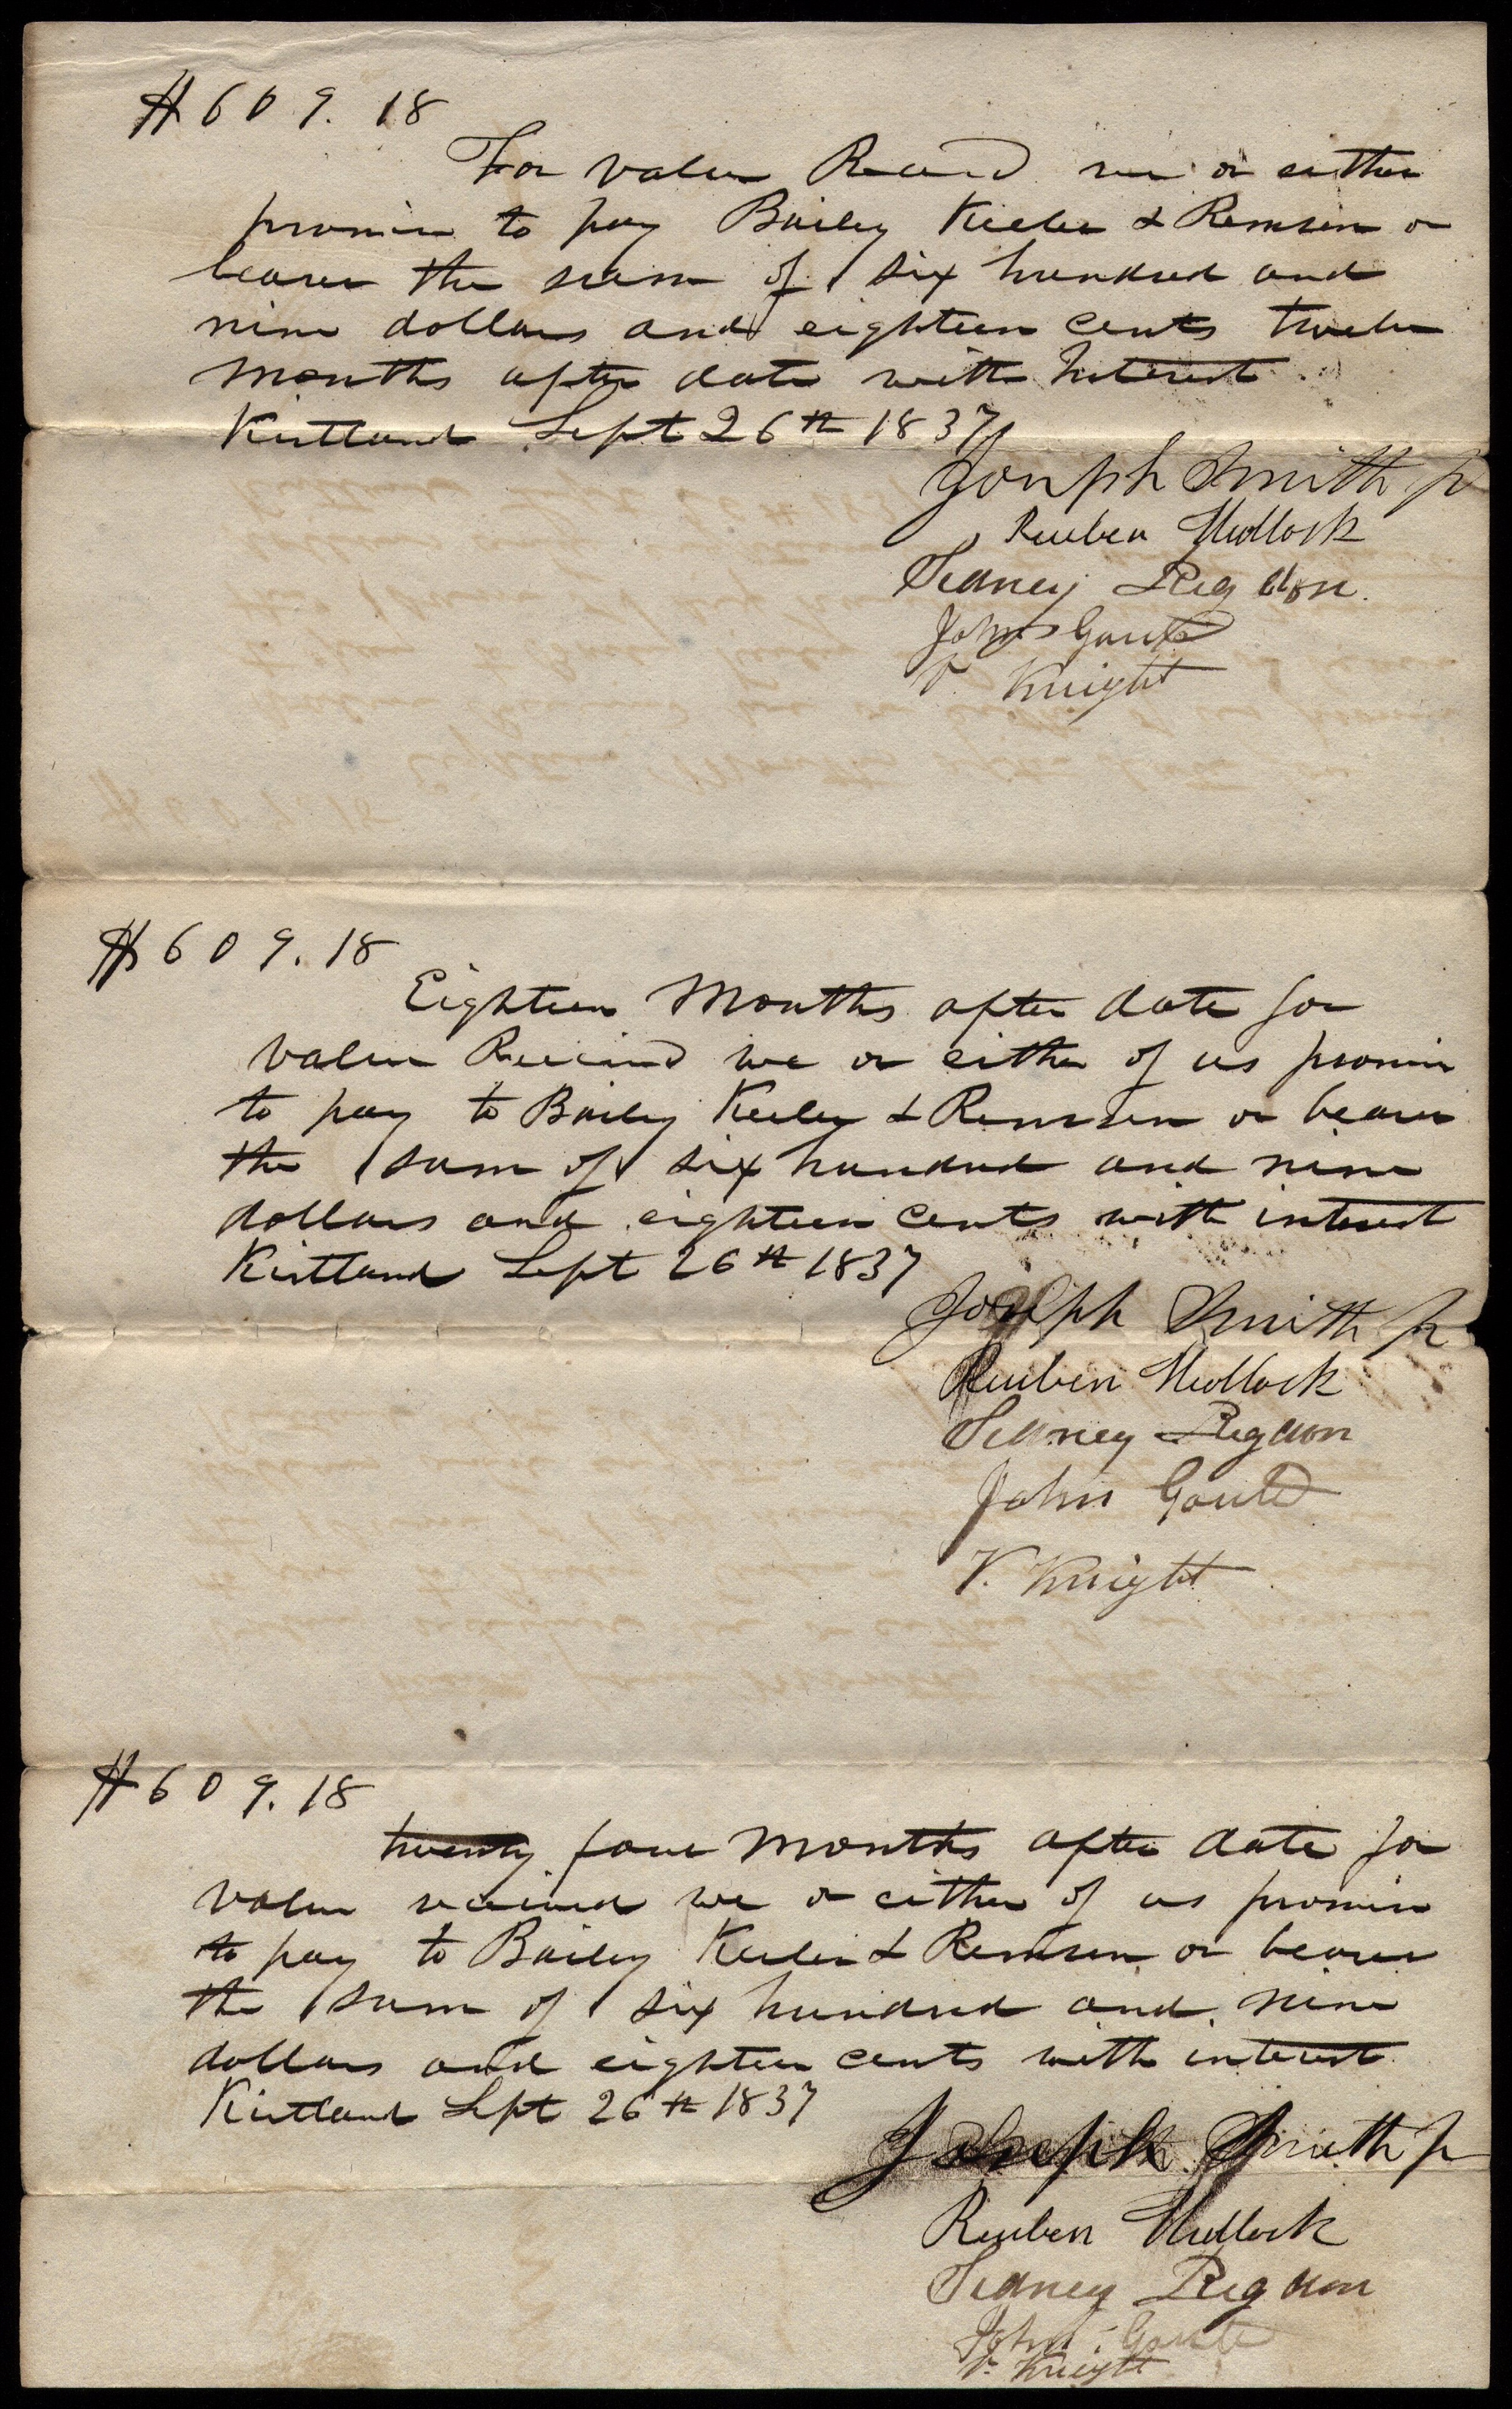 $609.18
For value Recived we or either
promise to pay Bailey Keeler & Remsen or
bearer the sum of six hundred and
nine dollars and eighteen cents twelve
months after date with Interest
Kirtland Sept 26th 1837
Joseph Smith Jr
Reuben Hedlock
Sidney Rigdon.
John Gould
V. Knight
$609.18
Eighteen Months after date for
value Received we or either of us promise
to pay to Bailey Keeler & Remsen or bearer
the sum of six hundred and nine
dollars and eighteen cents with interest
Kirtland Sept 26th 1837
Joseph Smith Jr
Reuben Hedlock
Sidney Rigdon
John Gould
V. Knight
$609.18
twenty four Months after date for
value received we or either of us promise
to pay to Bailey Keeler & Remsen or bearer
the sum of six hundred and nine
dollars and eighteen cents with interest
Kirtland Sept 26th 1837
Joseph Smith Jr
Reuben Hedlock
Sidney Rigdon
John Gould
V. Knight